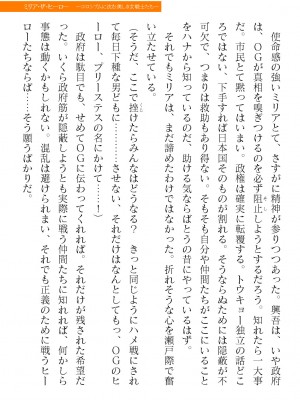 ミリア・ザ・ヒーロー
使命感の強いミリアとて、さすがに精神が参りつつあった。興吾は、いや政府
は、ＯＧが真相を嗅ぎつけるのを必ず阻止しようとするだろう。知れたら一大事
だ。市民とて黙ってはいまい。政権は確実に転覆する。トウキョー独立の話どこ
ろではない、下手すれば日本国そのものが割れる。そうならぬためには隠蔽が不
可欠で、つまりは救助もあり得ない。そもそも自分や仲間たちがここにいること
をハナから知っているのだ、助ける気ならばとうの昔にやっているはず。
それでもミリアは、まだ諦めたわけではなかった。折れそうな心を瀬戸際で奮
い立たせている。
（そうだ、ここで挫けたらみんなはどうなる？　きっと同じようにハメ戦にされ
て毎日下種な男どもに………させない、それだけはなんとしても、ＯＧのヒ
ーロー、プリーステスの名にかけて……！）
政府は駄目でも、せめてＯＧに伝わってくれれば。それだけが残された希望だ
った。いくら政府筋が隠蔽しようとも実際に戦う仲間たちに知れれば、何かしら
事態は動くかもしれない。混乱は避けられまい、それでも正義のために戦うヒー
ローたちならば。そう願うばかりだ。